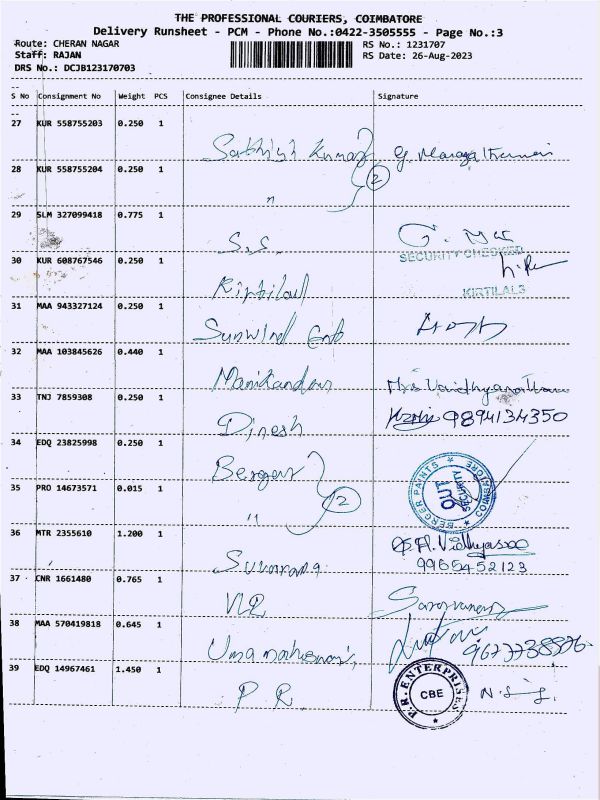 THE PROFESSIONAL COURIERS, COIMBATORE
Delivery Runsheet - PCM - Phone No.:0422-3505555 - Page No.:3
Route: CHERAN NAGAR RS No.: 1231707
Staff: RAJAN RS Date: 26-Aug-2023
DRS No.: DCJB123170703
S No Consignment No Weight PCS Consignee Details Signature
27 KUR 558755203 0.250 1 Sathish Kumar
28 KUR 558755204 0.250 1 " 2
29 SLM 327099418 0.775 1 S.S.
SECURITY CHECKED
30 KUR 608767546 0.250 1 Kirtilal
KIRTILALS
31 MAA 943327124 0.250 1 Sunwind
32 MAA 103845626 0.440 1 Manikandan Mrs Vaidhyanathan
33 TNJ 7859308 0.250 1 Dinesh 9894134350
34 EDQ 23825998 0.250 1 Berger
BERGER PAINTS COIMBATORE OUT SECURITY
35 PRO 14673571 0.015 1 " 2
36 MTR 2355610 1.200 1 Suvarna
9965452123
37 CNR 1661480 0.765 1 Saravanan
38 MAA 570419818 0.645 1 Umamaheswari
39 EDQ 14967461 1.450 1 P.R.
P.R. ENTERPRISES CBE